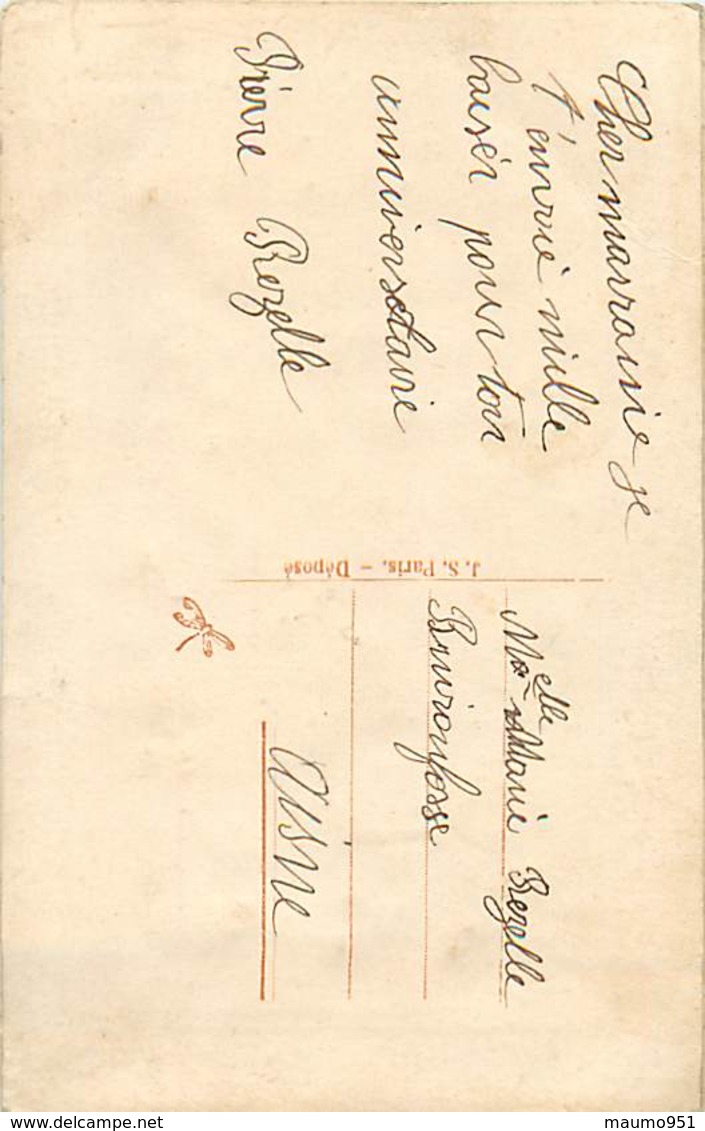 Cher marraine je
t'envoie mille
baiser pour ton
anniversetaire
Piérre Rezelle
J. S. Paris. – Déposé
Melle Marie Rezelle
Buironfosse
Aisne
maumo951